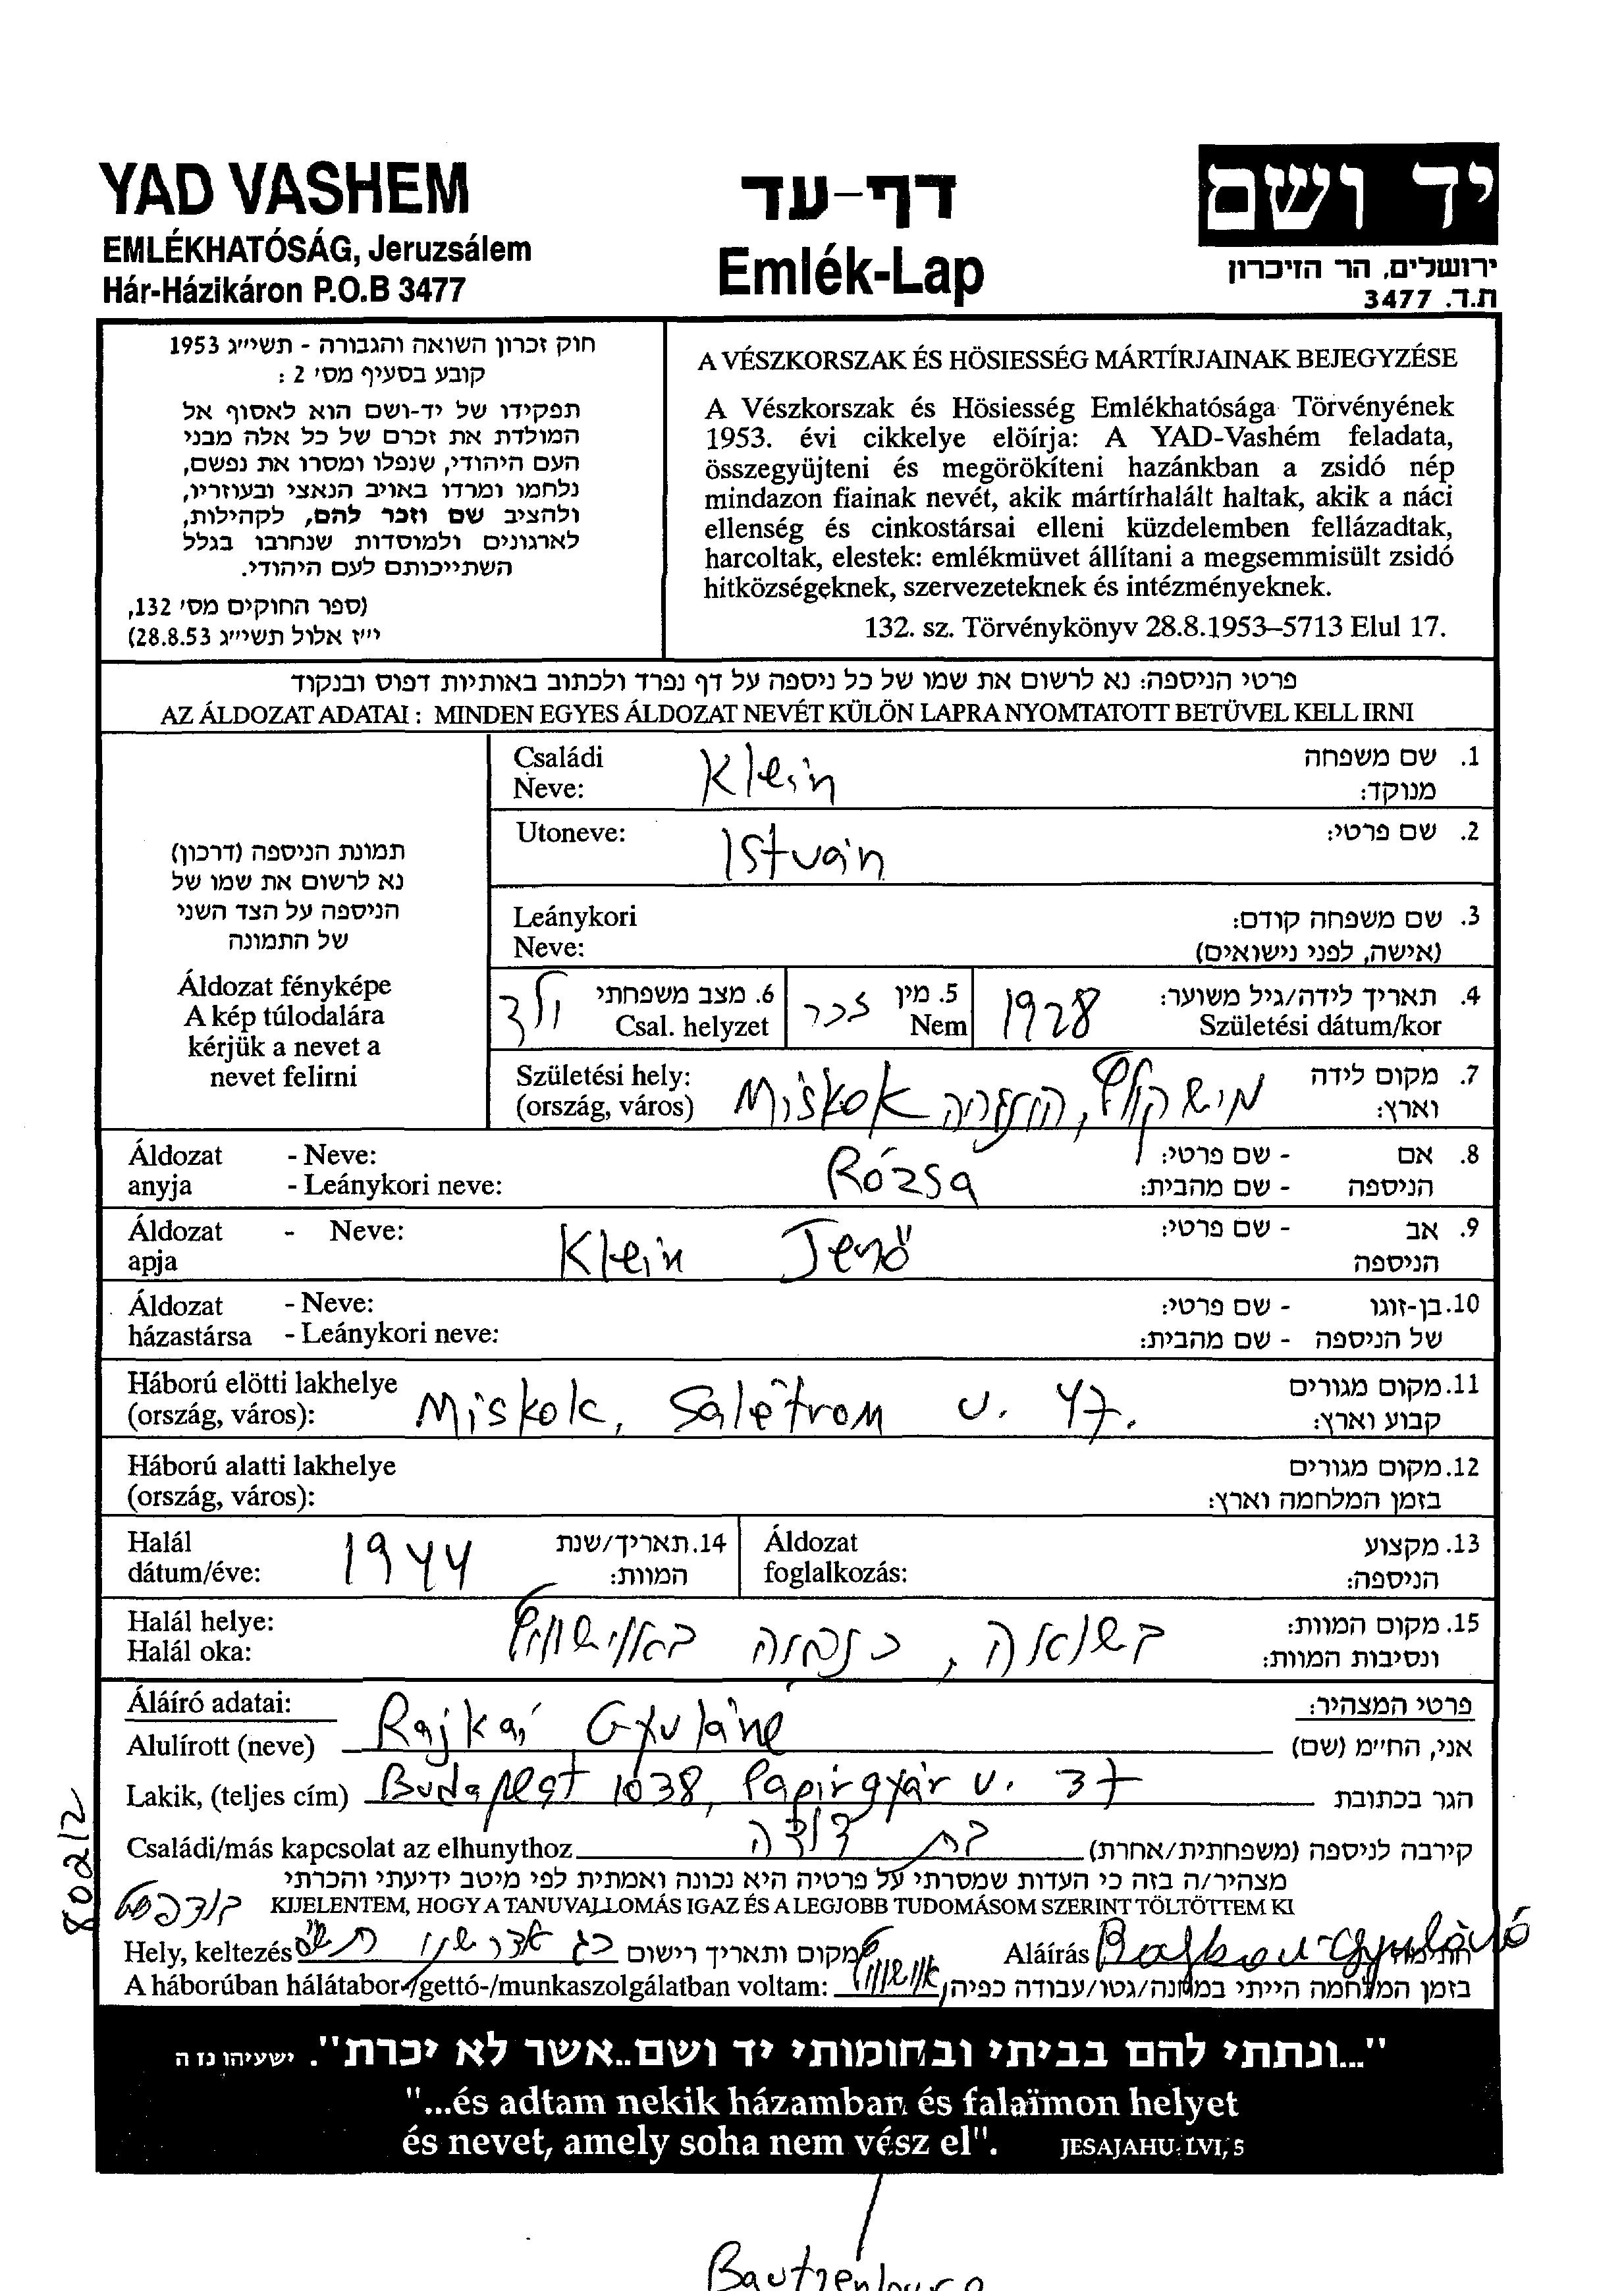 YAD VASHEM
EMLÉKHATÓSÁG, Jeruzsálem
Hár-Házikáron P.O.B 3477
דף-עד
Emlék-Lap
יד ושם
ירושלים, הר הזיכרון
ת.ד. 3477
חוק זכרון השואה והגבורה - תשי״ג 1953
קובע בסעיף מס׳ 2 :
תפקידו של יד-ושם הוא לאסוף אל
המולדת את זכרם של כל אלה מבני
העם היהודי, שנפלו ומסרו את נפשם,
נלחמו ומרדו באויב הנאצי ובעוזריו,
ולהציב שם וזכר להם, לקהילות,
לארגונים ולמוסדות שנחרבו בגלל
השתייכותם לעם היהודי.
(ספר החוקים מס׳ 132,
י״ז אלול תשי״ג 28.8.53)
A VÉSZKORSZAK ÉS HÖSIESSÉG MÁRTÍRJAINAK BEJEGYZÉSE
A Vészkorszak és Hösiesség Emlékhatósága Törvényének
1953. évi cikkelye elöírja: A YAD-Vashém feladata,
összegyüjteni és megörökíteni hazánkban a zsidó nép
mindazon fiainak nevét, akik mártírhalált haltak, akik a náci
ellenség és cinkostársai elleni küzdelemben fellázadtak,
harcoltak, elestek: emlékmüvet állítani a megsemmisült zsidó
hitközségeknek, szervezeteknek és intézményeknek.
132. sz. Törvénykönyv 28.8.1953–5713 Elul 17.
פרטי הניספה: נא לרשום את שמו של כל ניספה על דף נפרד ולכתוב באותיות דפוס ובנקוד
AZ ÁLDOZAT ADATAI : MINDEN EGYES ÁLDOZAT NEVÉT KÜLÖN LAPRA NYOMTATOTT BETÜVEL KELL IRNI
תמונת הניספה (דרכון)
נא לרשום את שמו של
הניספה על הצד השני
של התמונה
Áldozat fényképe
A kép túlodalára
kérjük a nevet a
nevet felirni
Családi Klein 1. שם משפחה
Neve: מנוקד:
Utoneve: István 2. שם פרטי:
Leánykori 3. שם משפחה קודם:
Neve: (אישה, לפני נישואים)
ילד 6. מצב משפחתי זכר 5. מין 1928 4. תאריך לידה/גיל משוער:
Csal. helyzet Nem Születési dátum/kor
Születési hely: 7. מקום לידה
(ország, város) Miskok מישקולץ, הונגריה וארץ:
Áldozat - Neve: Rózsa 8. אם - שם פרטי:
anyja - Leánykori neve: הניספה - שם מהבית:
Áldozat - Neve: Klein Jenö 9. אב - שם פרטי:
apja הניספה
Áldozat - Neve: 10. בן-זוגו - שם פרטי:
házastársa - Leánykori neve: של הניספה - שם מהבית:
Háború elötti lakhelye 11. מקום מגורים
(ország, város): Miskok, Salétrom u. 47. קבוע וארץ:
Háború alatti lakhelye 12. מקום מגורים
(ország, város): בזמן המלחמה וארץ:
Halál 1944 14. תאריך/שנת Áldozat 13. מקצוע
dátum/éve: המוות: foglalkozás: הניספה:
Halál helye: בשואה, כנראה באושוויץ 15. מקום המוות:
Halál oka: ונסיבות המוות:
Áláíró adatai: פרטי המצהיר:
Alulírott (neve) Rajkai Gyuláné אני, הח״מ (שם)
Lakik, (teljes cím) Budapest 1038, Papirgyár u. 37 הגר בכתובת
Családi/más kapcsolat az elhunythoz בת דודה קירבה לניספה (משפחתית/אחרת)
מצהיר/ה בזה כי העדות שמסרתי על פרטיה היא נכונה ואמתית לפי מיטב ידיעתי והכרתי
בודפשט KIJELENTEM, HOGY A TANUVALLOMÁS IGAZ ÉS A LEGJOBB TUDOMÁSOM SZERINT TÖLTÖTTEM KI
Hely, keltezés כג אדר שני מקום ותאריך רישום Aláírás
A háborúban hálátabor-/gettó-/munkaszolgálatban voltam: אושוויץ בזמן המלחמה הייתי במחנה/גטו/עבודה כפיה
80212
"...ונתתי להם בביתי ובחומותי יד ושם..אשר לא יכרת". ישעיהו נז ה
"...és adtam nekik házamban és falaïmon helyet
és nevet, amely soha nem vész el". JESAJAHU: LVI, 5